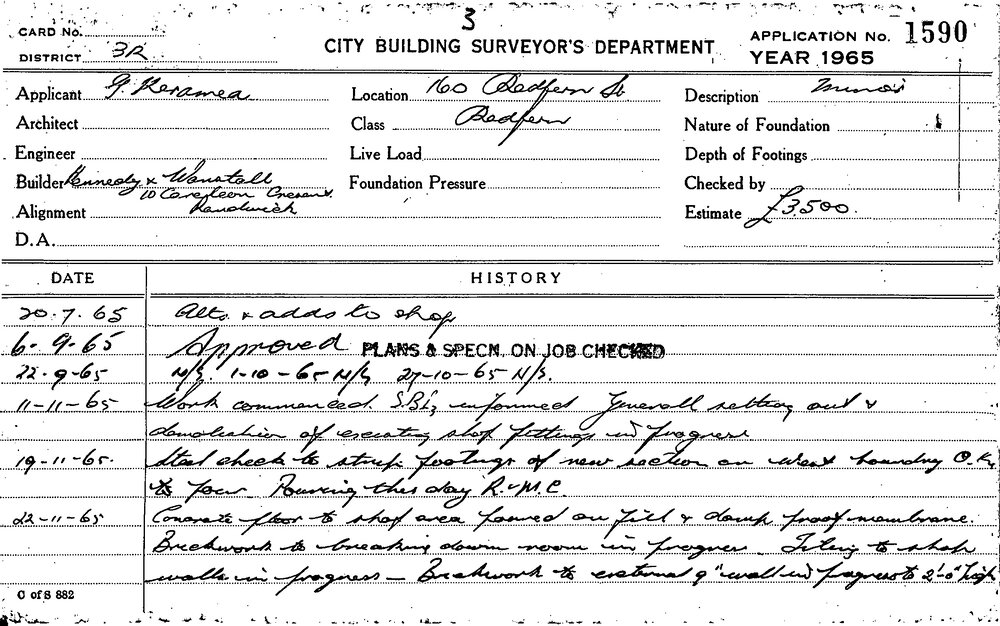 3
CARD No.
DISTRICT 3R
CITY BUILDING SURVEYOR'S DEPARTMENT
APPLICATION No. 1590
YEAR 1965
Applicant G. Keramea
Location 160 Redfern St
Description Minor
Architect
Class Redfern
Nature of Foundation
Engineer
Live Load
Depth of Footings
Builder Kennedy & Wanstall
10 Caerleon Crescent
Randwick
Foundation Pressure
Checked by
Alignment
Estimate £3,500.
D.A.
DATE HISTORY
20.7.65 Alts. & adds to shop
6-9-65 Approved PLANS & SPECN. ON JOB CHECKED
22-9-65 N/S. 1-10-65 N/S 27-10-65 N/S.
11-11-65 Work commenced. informed Generall setting out &
demolition of existing shop fittings in progress
19-11-65. Steel check to strip footings of new section on West boundry O.K.
to pour. Pouring this day R.M.C.
22-11-65 Concrete floor to shop area poured on fill & damp proof membrane.
Brickwork to breaking down room in progress. Tiling to shop
walls in progress — Brickwork to external 9" wall in progress to 2'-0" high
C of S 882